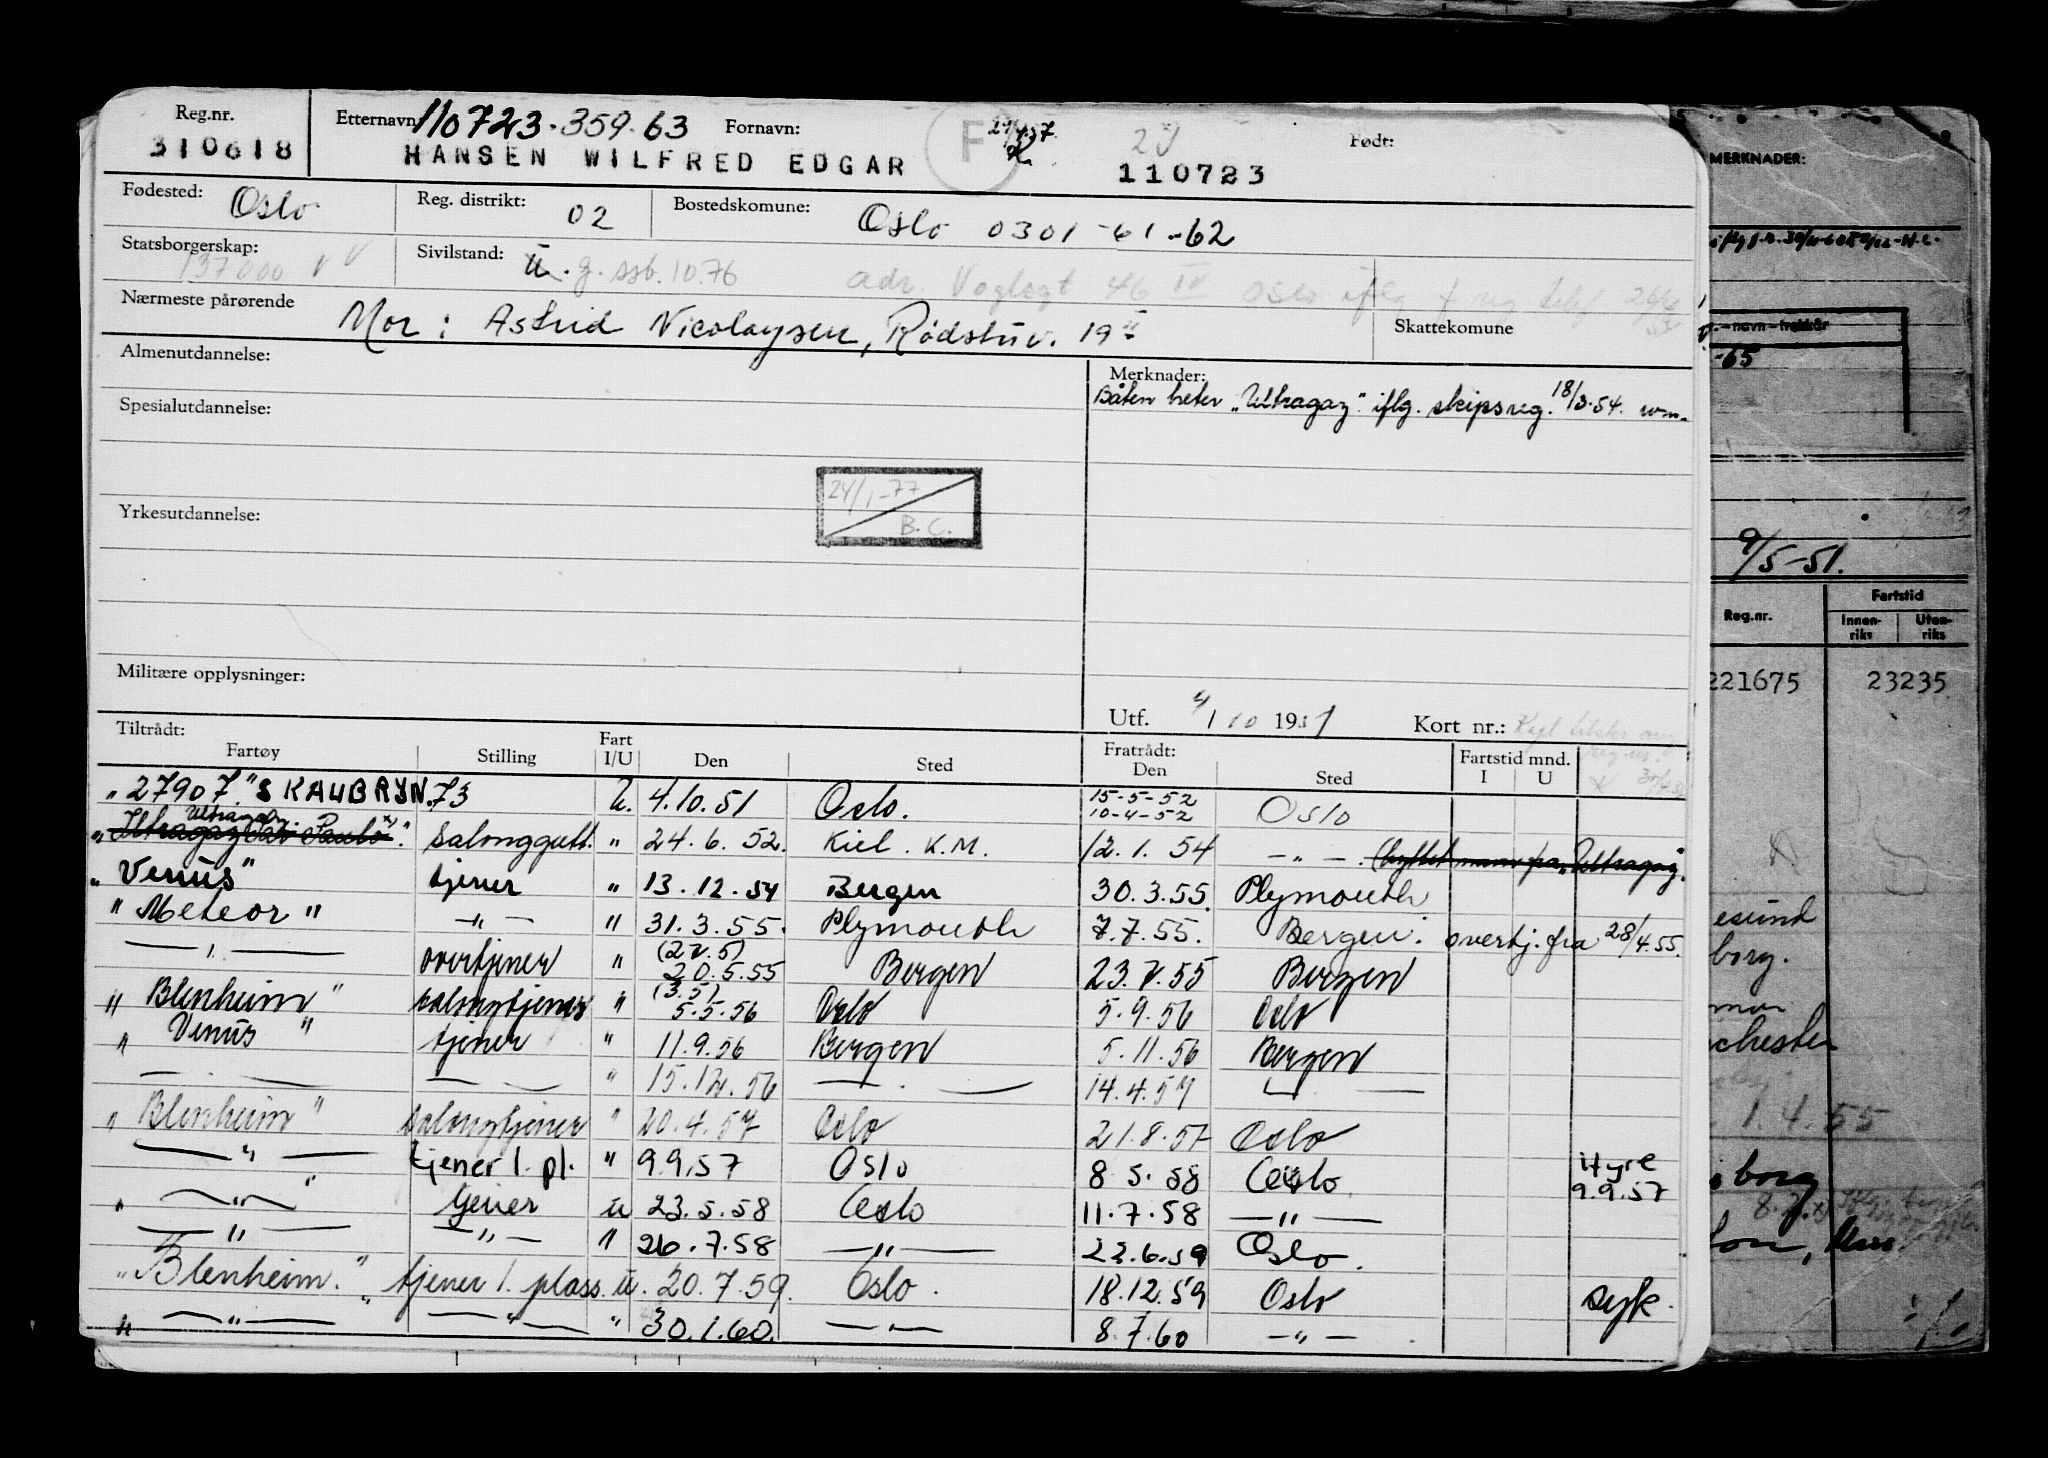 Reg.nr. Etternavn 110723.359.63 Fornavn: F 23 Født:
310618 HANSEN WILFRED EDGAR 110723
Fødested: Oslo Reg. distrikt: 02 Bostedskomune: Oslo 0301-61-62
Statsborgerskap: 137000 Sivilstand: u. g. ssb. 10.76 adr. Voglsgt 46 IV Oslo
Nærmeste pårørende Mor: Astrid Nicolaysen, Rødstuv. 19 Skattekomune
Almenutdannelse: Merknader:
Båten heter "Ultragaz" iflg. skipsreg. 18/3-54. wm.
Spesialutdannelse:
24/1-77
B.C.
Yrkesutdannelse:
Militære opplysninger:
Utf. 4/10 1951 Kort nr.:
Tiltrådt: Fart Fratrådt: Fartstid mnd.
Fartøy Stilling I/U Den Sted Den Sted I U
"27907 "SKAUBRYN. 73 U. 4.10.51 Oslo. 15-5-52 10-4-52 Oslo
Ultragaz
"Ultragaz Sao Paulo" x) salonggutt. " 24.6.52. Kiel. K.M. 12.1.54 — " — (byttet navn fra "Ultragaz.
"Venus" tjener " 13.12.54 Bergen 30.3.55. Plymouth
"Meteor" — " — " 31.3.55. Plymouth 7.7.55. Bergen. overtj. fra 28/4.55.
— " — overtjener " (22.5) 20.5.55 Bergen 23.7.55 Bergen
"Blenheim" salongtjener " (3.5) 5.5.56 Oslo 5.9.56 Oslo
"Venus" tjener " 11.9.56 Bergen 5.11.56 Bergen
— " — — " — " 15.12.56 — " — 14.4.57 — " —
"Blenheim" salongtjener " 20.4.57 Oslo 21.8.57 Oslo
— " — tjener 1. pl. " 9.9.57 Oslo 8.5.58 Oslo. 9.9.57
" — " — " tjener u 23.5.58 Oslo 11.7.58 — " —
— " — — " — " 26.7.58 — " — 22.6.59 Oslo.
"Blenheim." tjener 1. plass. u. 20.7.59. Oslo. 18.12.59 Oslo syk.
" — " — — " — " 30.1.60. — " — 8.7.60 — " —
MERKNADER:
-navn-trekkår
-65
9/5-51.
Reg.nr. Fartstid
Innen-riks Uten-riks
221675 23235
esund
borg.
chester
1.4.55
borg